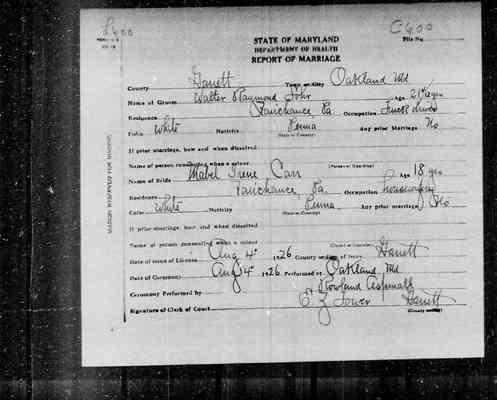 C600
STATE OF MARYLAND
DEPARTMENT OF HEALTH
REPORT OF MARRIAGE
File No.
County Garrett Town or City Oakland Md
Name of Groom Walter Raymond Age 21 yrs
Residence Fairchance, Pa. Occupation Truck driver
Color White Nativity Penna Any prior Marriage No
(State or Country)
If prior marriage, how and when dissolved
Name of person consenting when a minor (Parent or Guardian)
Name of Bride Mabel Irene Carr Age 18 yrs
Residence Fairchance, Pa. Occupation housework
Color White Nativity Penna. Any prior marriage No
(State or Country)
If prior marriage, how and when dissolved
Name of person consenting when a minor (Parent or Guardian)
Date of issue of License Aug 4" 1926 County of Issue Garrett
Date of Ceremony Aug 4" 1926 Performed at Oakland Md
Ceremony Performed by Rowland Aspinall
Signature of Clerk of Court E. Z. Tower Garrett
MARGIN RESERVED FOR BINDING